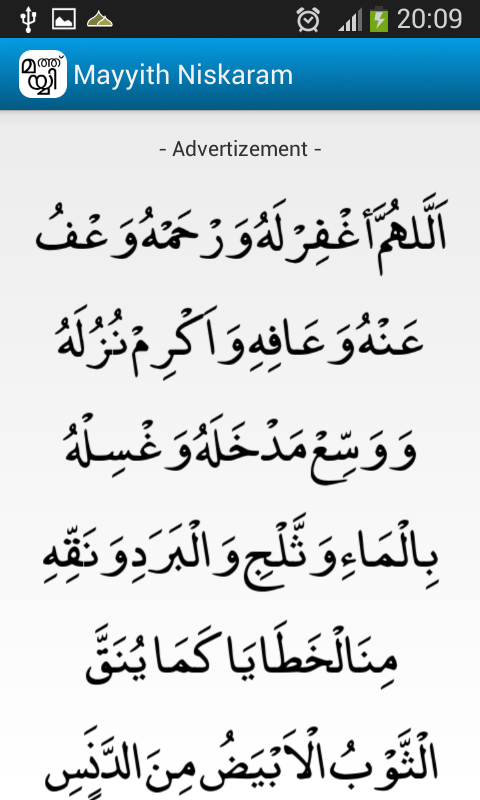 20:09
മയ്യിത്ത്
Mayyith Niskaram
- Advertizement -
اَللَّهُمَّ أغْفِرْ لَهُ وَرْحَمْهُ وَعْفُ
عَنْهُ وَعَافِهِ وَاَكْرِمْ نُزُلَهُ
وَوَسِّعْ مَدْخَلَهُ وَغْسِلْهُ
بِالْمَاءِ وَثَّلْجِ وَالْبَرَدِ وَنَقِّهِ
مِنَالْخَطَايَا كَمَا يُنَقَّ
الْثَّوْبُ الْاَبْيَضُ مِنَ الدَّنَسِ